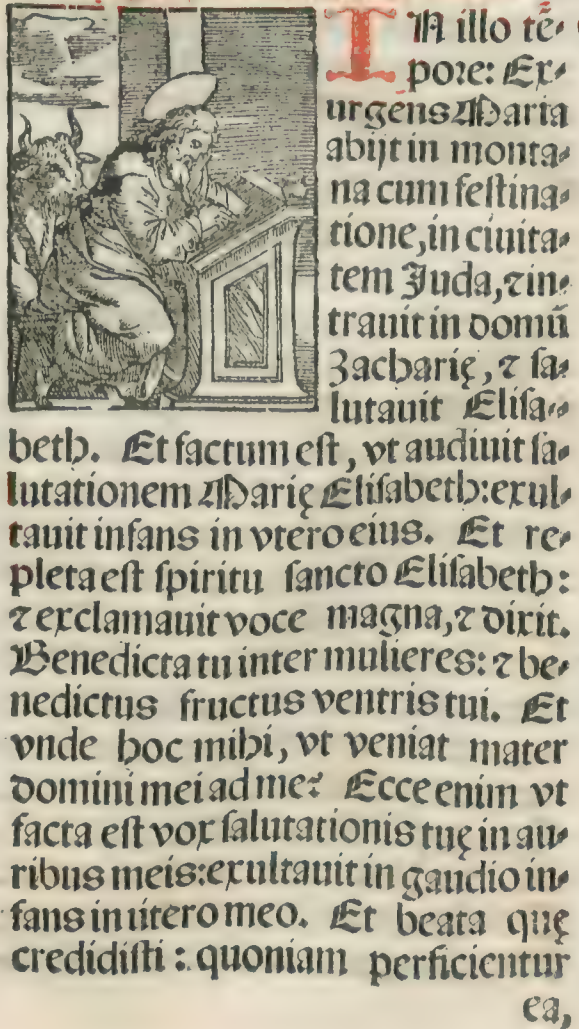 IN illo tē⸗
pore: Ex⸗
urgens Maria
abijt in monta⸗
na cum festina⸗
tione, in ciuita⸗
tem Juda, ⁊ in⸗
trauit in domū
Zacharię, ⁊ sa⸗
lutauit Elisa⸗
beth. Et factum est, vt audiuit sa⸗
lutationem Marię Elisabeth: exul⸗
tauit infans in vtero eius. Et re⸗
pleta est spiritu sancto Elisabeth:
⁊ exclamauit voce magna, ⁊ dixit.
Benedicta tu inter mulieres: ⁊ be⸗
nedictus fructus ventris tui. Et
vnde hoc mihi, vt veniat mater
domini mei ad me? Ecce enim vt
facta est vox salutationis tuę in au⸗
ribus meis: exultauit in gaudio in⸗
fans in utero meo. Et beata quę
credidisti: quoniam perficientur
ea,